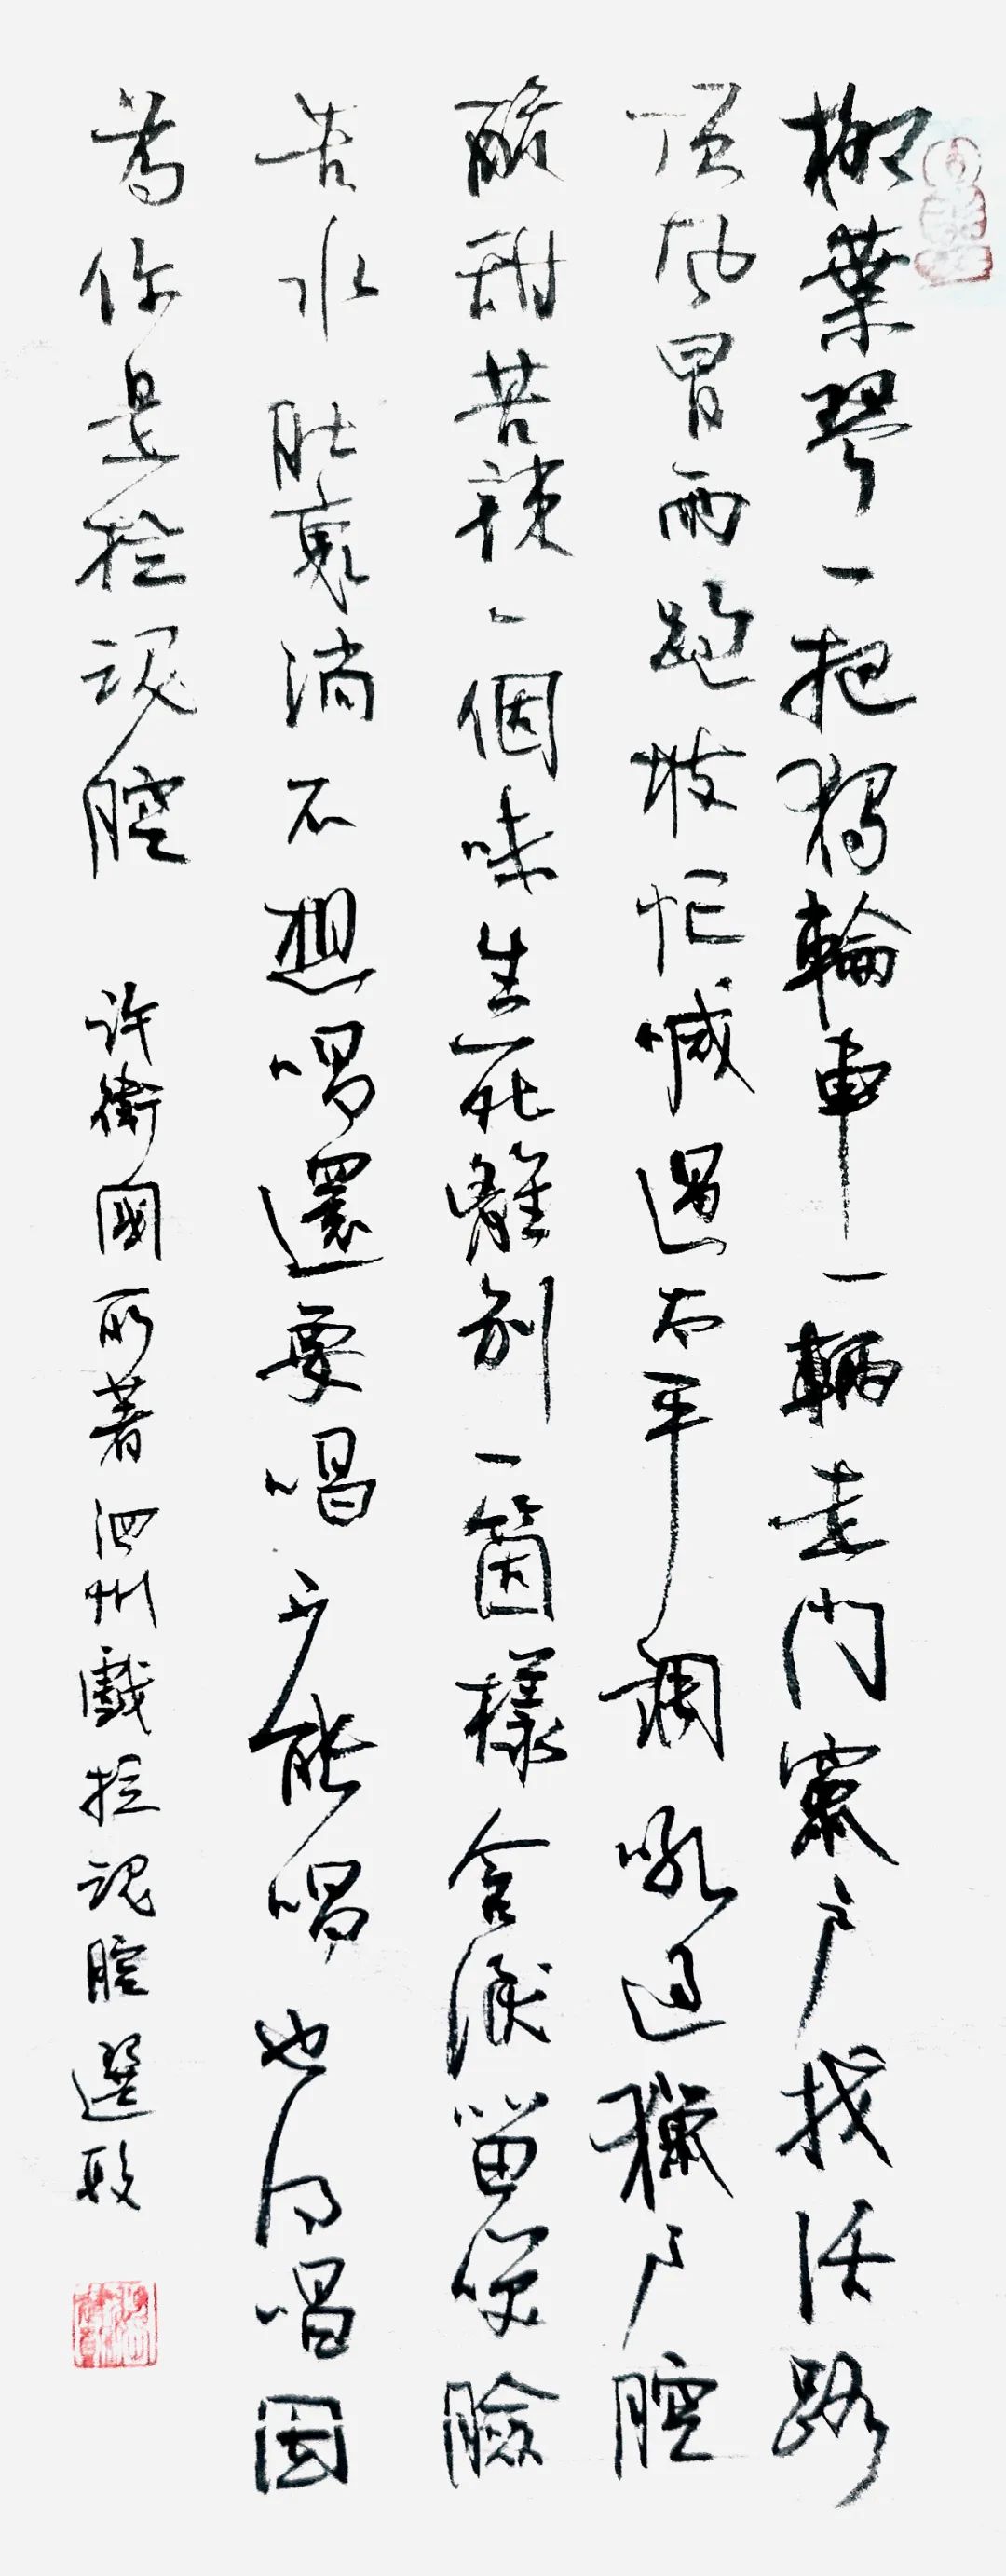 柳葉琴一把獨輪車一輛走門竄户找活路
頂風冒雨跑坡忙喊過太平調吼過獵户腔
酸甜苦辣一個味生死離別一箇樣含淚留笑臉
苦水肚裏淌不想唱還要唱不能唱也得唱因
為你是拉魂腔 許衛國所著泗州戲拉魂腔選段